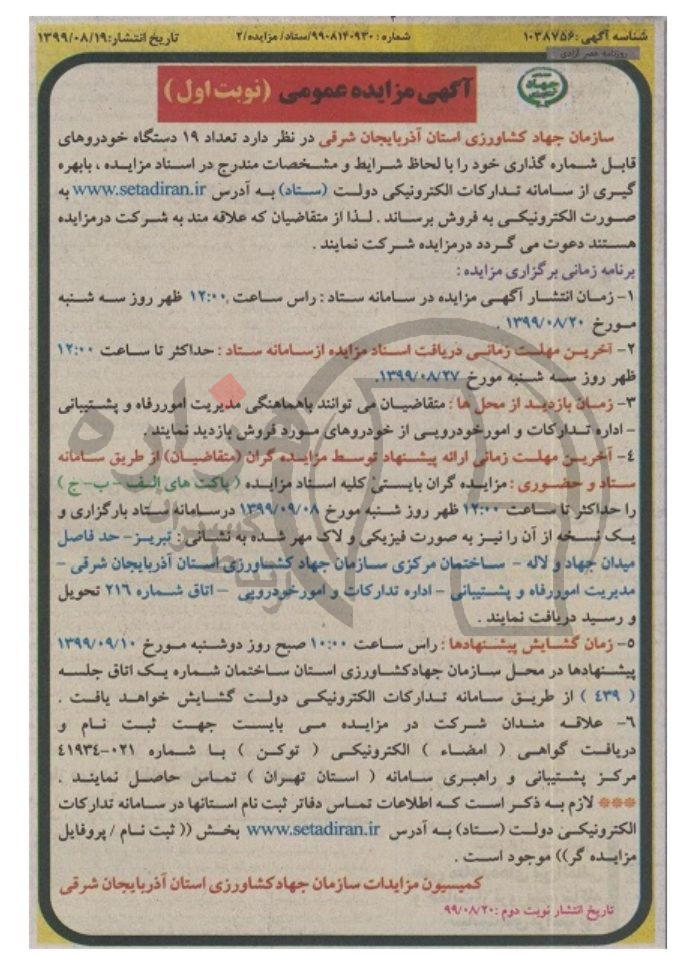 شناسه آگهی: ۱۰۳۸۷۵۶
شماره: ۹۹۰۸۱۴۰۹۳۰/ستاد/ مزایده/۲
تاریخ انتشار: ۱۳۹۹/۰۸/۱۹
روزنامه عصر آزادی
جهاد
آگهی مزایده عمومی (نوبت اول)
سازمان جهاد کشاورزی استان آذربایجان شرقی در نظر دارد تعداد ۱۹ دستگاه خودروهای
قابل شماره گذاری خود را با لحاظ شرایط و مشخصات مندرج در اسناد مزایده ، بابهره
گیری از سامانه تدارکات الکترونیکی دولت (ستاد) به آدرس www.setadiran.ir به
صورت الکترونیکی به فروش برساند . لذا از متقاضیان که علاقه مند به شرکت درمزایده
هستند دعوت می گردد درمزایده شرکت نمایند .
برنامه زمانی برگزاری مزایده :
۱- زمان انتشار آگهی مزایده در سامانه ستاد : راس ساعت ۱۲:۰۰ ظهر روز سه شنبه
مورخ ۱۳۹۹/۰۸/۲۰ .
۲- آخرین مهلت زمانی دریافت اسناد مزایده ازسامانه ستاد : حداکثر تا ساعت ۱۲:۰۰
ظهر روز سه شنبه مورخ ۱۳۹۹/۰۸/۲۷.
۳- زمان بازدید از محل ها : متقاضیان می توانند باهماهنگی مدیریت اموررفاه و پشتیبانی
- اداره تدارکات و امورخودرویی از خودروهای مورد فروش بازدید نمایند
۴- آخرین مهلت زمانی ارائه پیشنهاد توسط مزایده گران (متقاضیان) از طریق سامانه
ستاد و حضوری : مزایده گران بایستی کلیه اسناد مزایده ( پاکت های الف - ب- ج )
را حداکثر تا ساعت ۱۲:۰۰ ظهر روز شنبه مورخ ۱۳۹۹/۰۹/۰۸ درسامانه ستاد بارگزاری و
یک نسخه از آن را نیز به صورت فیزیکی و لاک مهر شده به نشانی : تبریز- حد فاصل
میدان جهاد و لاله - ساختمان مرکزی سازمان جهاد کشاورزی استان آذربایجان شرقی -
مدیریت اموررفاه و پشتیبانی - اداره تدارکات و امورخودرویی - اتاق شماره ۲۱۶ تحویل
و رسید دریافت نمایند .
۵- زمان گشایش پیشنهادها : راس ساعت ۱۰:۰۰ صبح روز دوشنبه مورخ ۱۳۹۹/۰۹/۱۰
پیشنهادها در محل سازمان جهادکشاورزی استان ساختمان شماره یک اتاق جلسه
( ۴۳۹ ) از طریق سامانه تدارکات الکترونیکی دولت گشایش خواهد یافت .
۶- علاقه مندان شرکت در مزایده می بایست جهت ثبت نام و
دریافت گواهی ( امضاء ) الکترونیکی ( توکن ) با شماره ۰۲۱-۴۱۹۳۴
مرکز پشتیبانی و راهبری سامانه ( استان تهران ) تماس حاصل نمایند .
*** لازم به ذکر است که اطلاعات تماس دفاتر ثبت نام استانها در سامانه تدارکات
الکترونیکی دولت (ستاد) به آدرس www.setadiran.ir بخش (( ثبت نام / پروفایل
مزایده گر)) موجود است .
کمیسیون مزایدات سازمان جهادکشاورزی استان آذربایجان شرقی
تاریخ انتشار نوبت دوم : ۹۹/۰۸/۲۰
هزاره